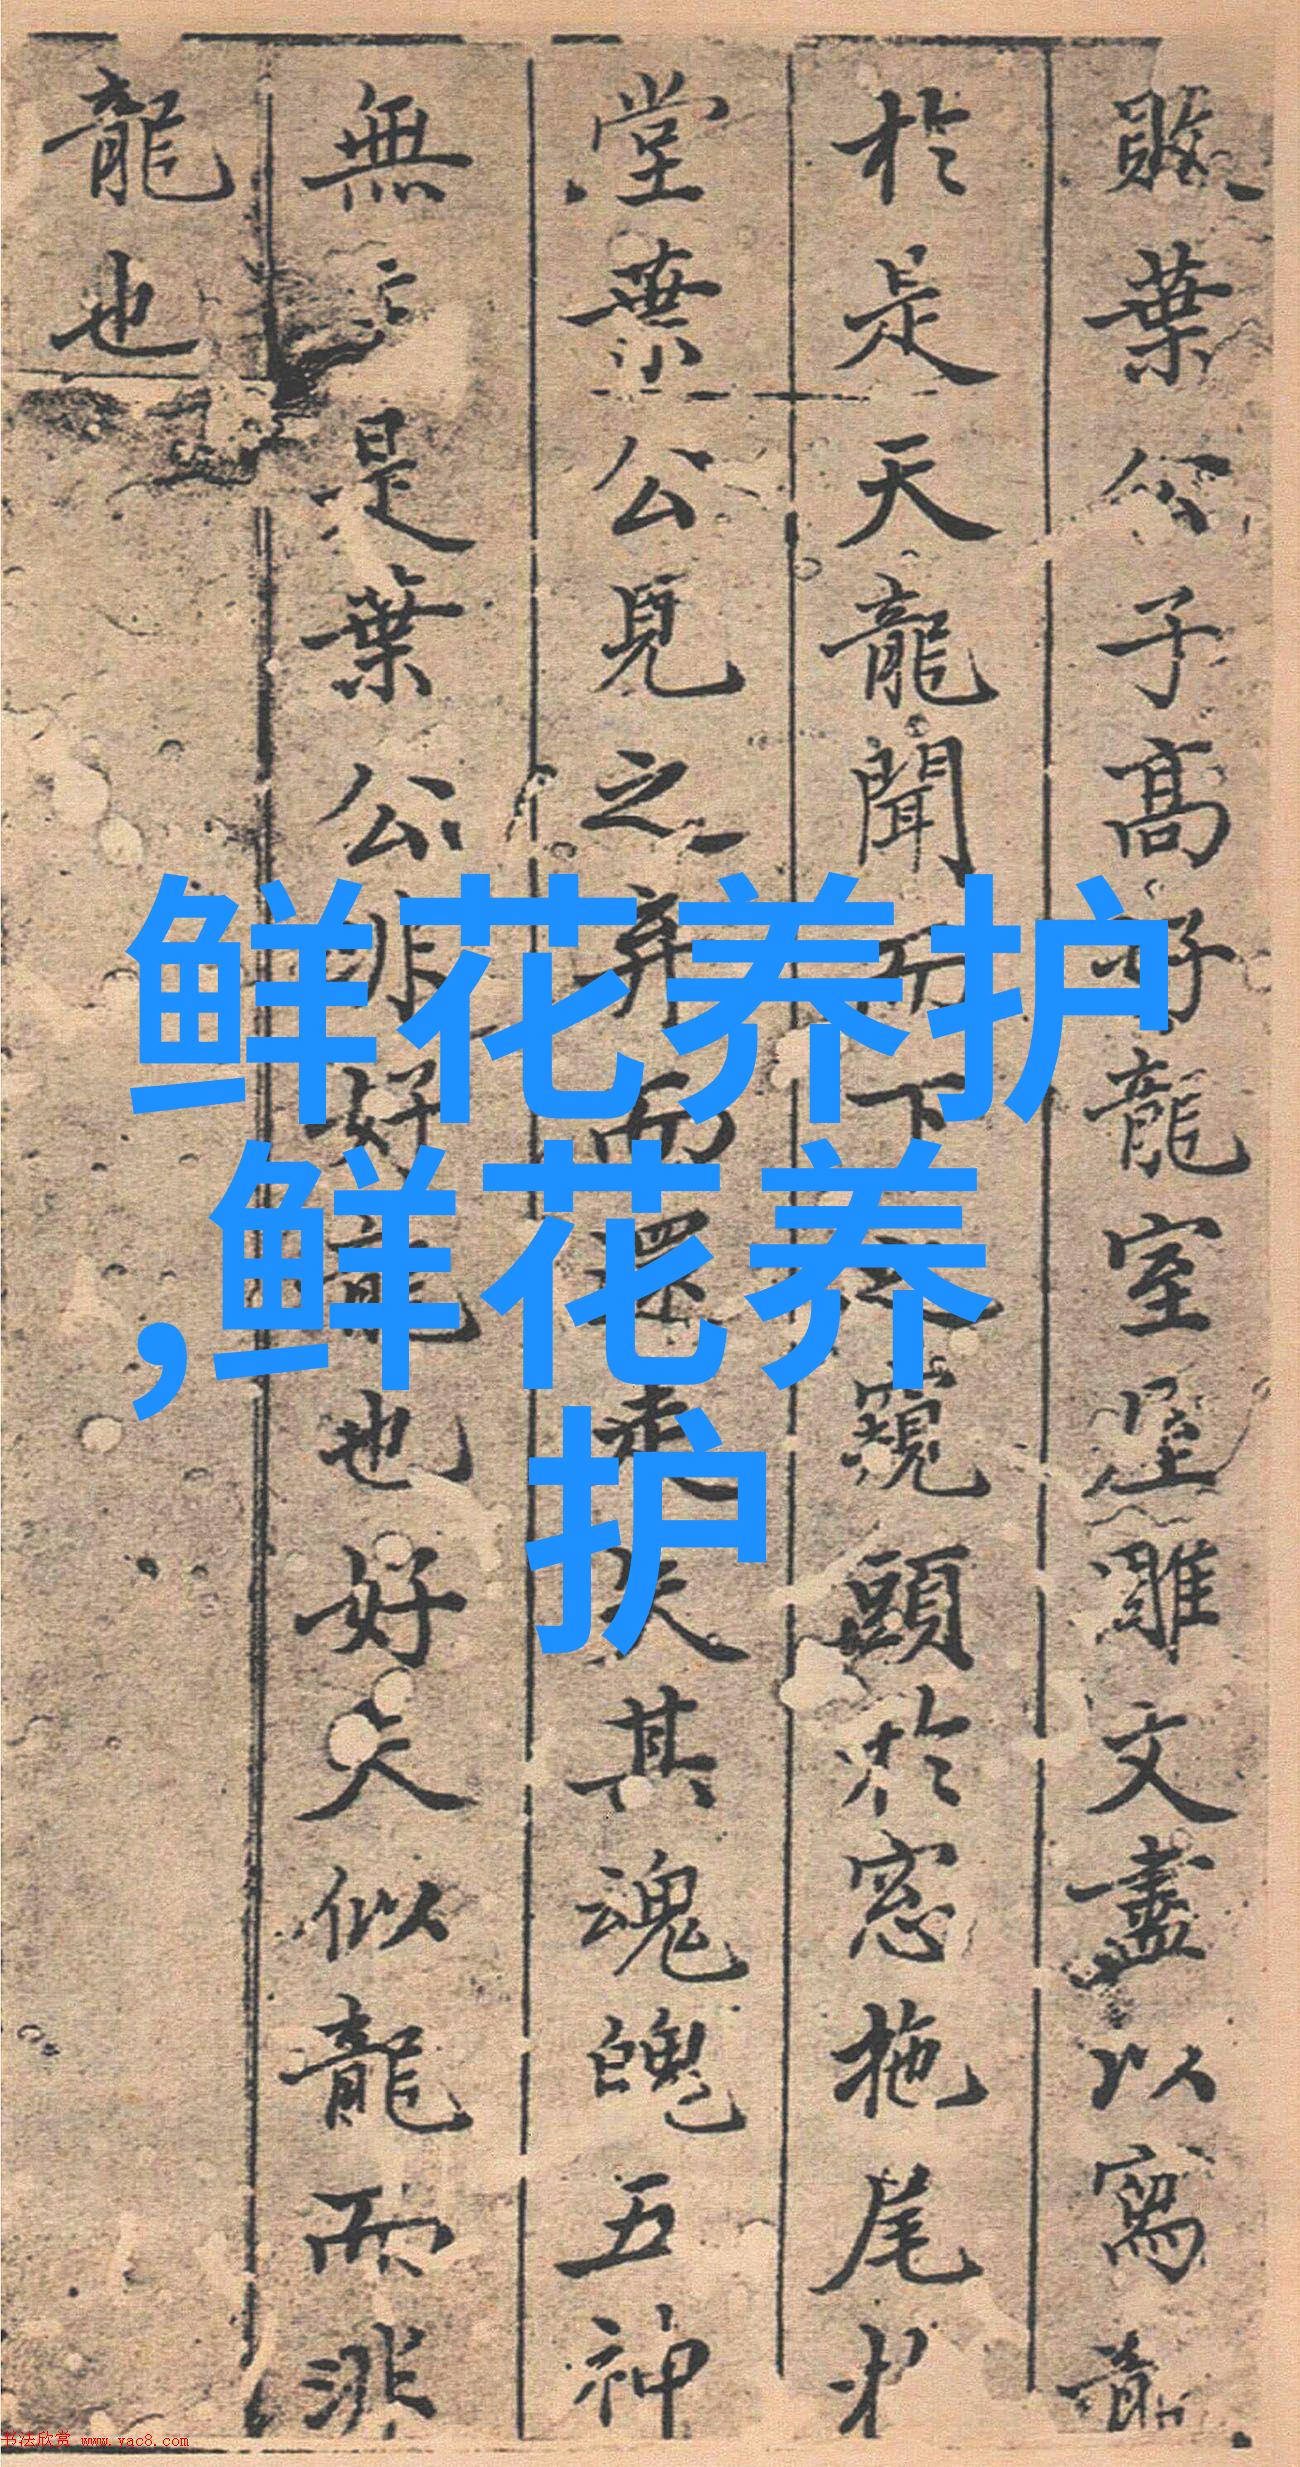 葉公子高好龍室屋雕文盡以寫龍
於是天龍聞而下之窺頭於窓拖尾於
堂葉公見之弃而還走失其魂魄五神
無主是葉公非好龍也好夫似龍而非
龍也
鲜花养护
,鲜花养
护
书法欣赏 www.yac8.com